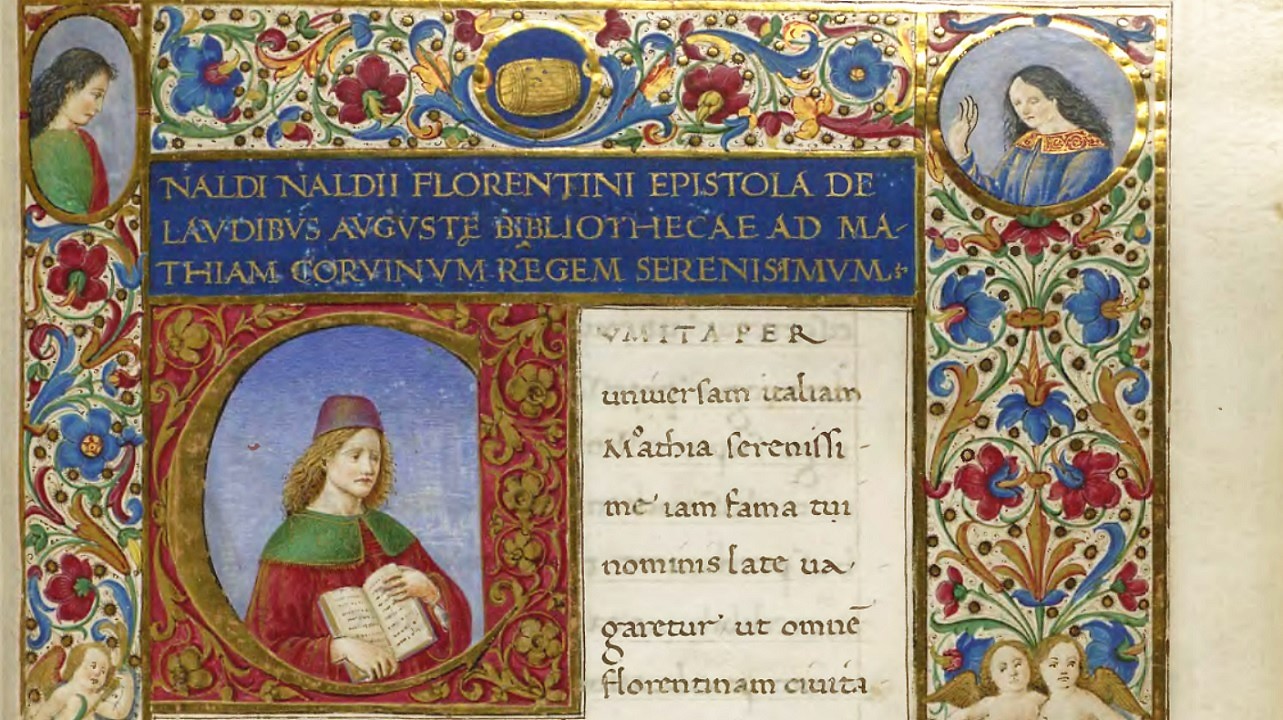 NALDI NALDII FLORENTINI EPISTOLA DE
LAVDIBVS AVGVSTE BIBLIOTHECAE AD MA-
THIAM CORVINVM REGEM SERENISIMVM.
CVM ITA PER
uniuersam italiam
Mathia serenissi-
me iam fama tui
nominis late ua-
garetur ut omnē
florentinam ciuita